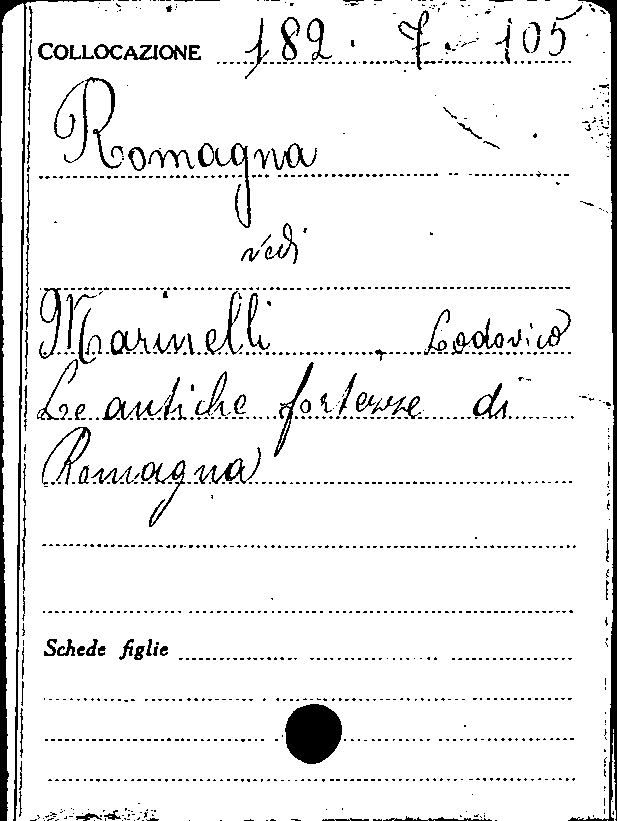 COLLOCAZIONE 182. 7. 105
Romagna
vedi
Marinelli, Lodovico
Le antiche fortezze di
Romagna
Schede figlie